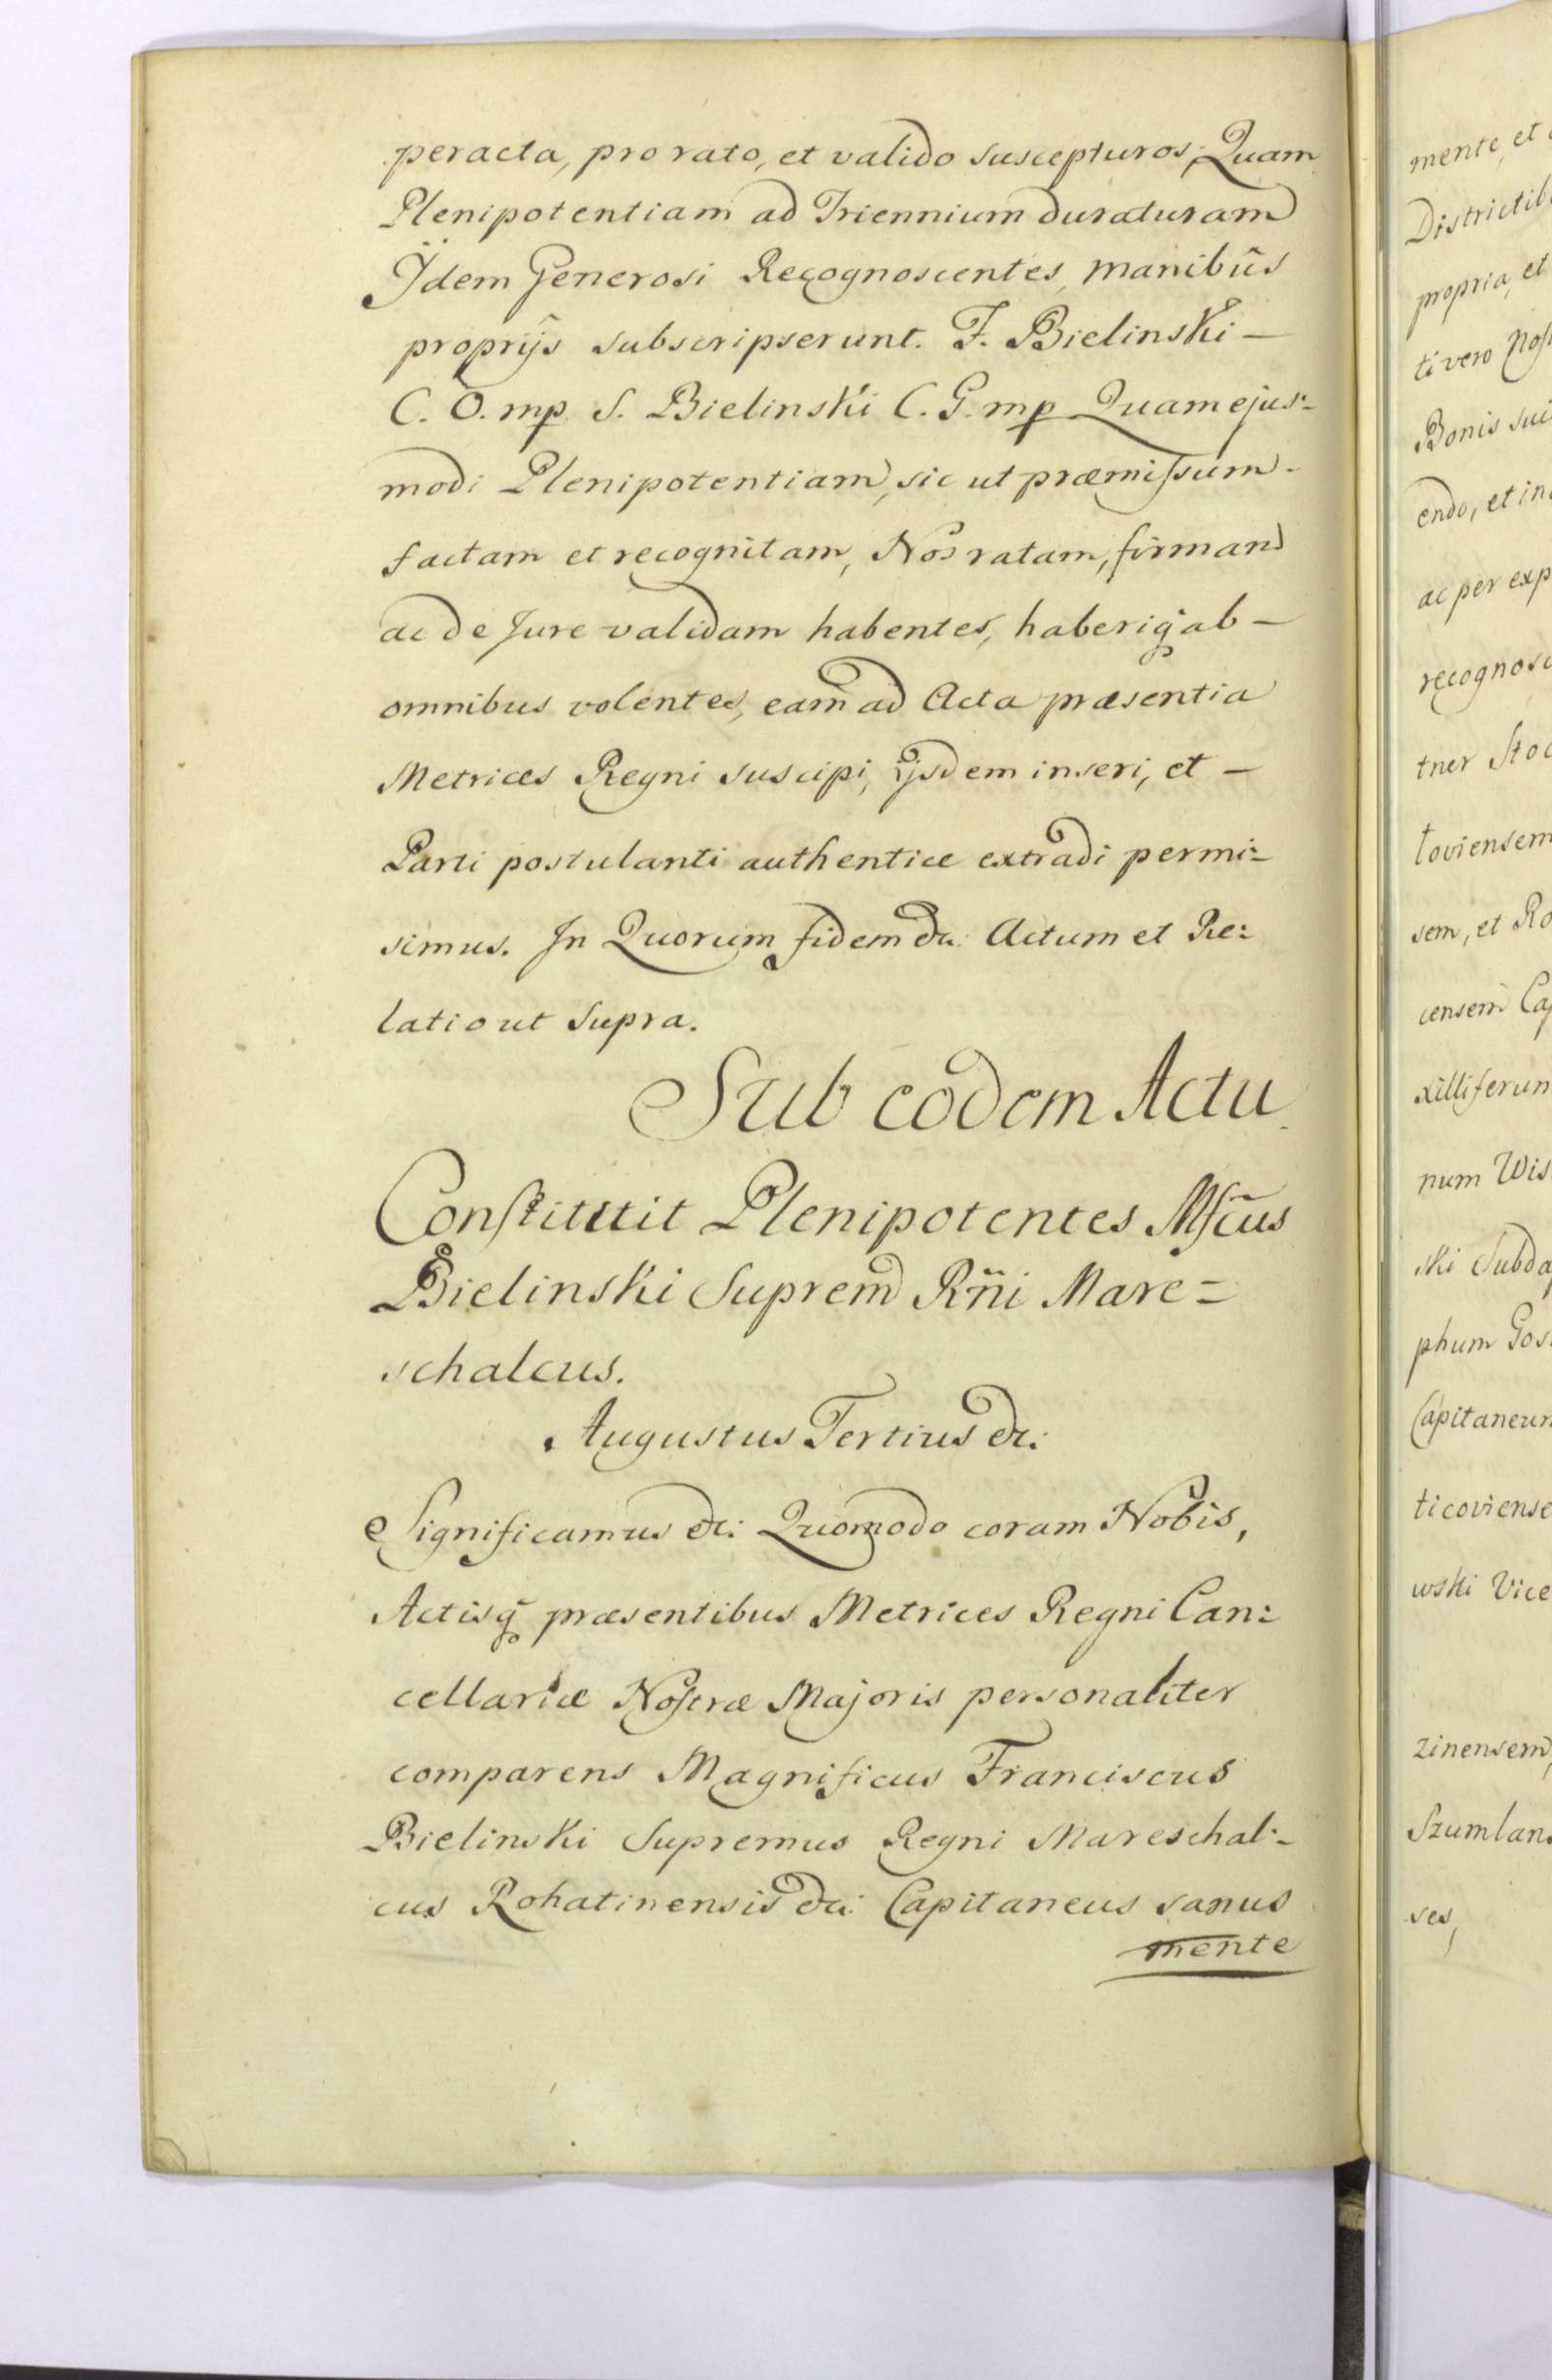 peracta, pro rato, et valido suscepturos, Quam
Plenipotentiam ad Triennium duraturam
Ÿdem Generosi Recognoscentes, manibus
proprijs subscripserunt. F. Bielinski —
C. O. mp. S. Bielinski C. G. mp Quam ejus:-
modi Plenipotentiam, sic ut præmissum -
factam et recognitam, Nos ratam, firmam
ac de Jure validam habentes, haberiq, ab —
omnibus volentes, eam ad Acta præsentia
Metrices Regni suscipi, ijsdem inseri, et —
Parti postulanti authentice extradi permi:-
simus. In Quorum fidem &c: Actum et Re:
latio ut supra.
Sub eodem Actu
Constituit Plenipotentes Mfcus
Bielinski Suprem Rñi Mare=
schalcus.
Augustus Tertius &c:
Significamus &c: Quomodo coram Nobis,
Actisq præsentibus Metrices Regni Can:
cellariæ Nostræ Majoris personaliter
comparens Magnificus Franciscus
Bielinski Supremus Regni Mareschal:-
cus Rohatinensis &c: Capitaneus sanus
mente
mente, et
propria, et
ti vero
Bonis sui
endo, et in
ac per exp
recognosc
tner Stoc
toviensem
sem, et Ro
censem Cap
xilliferum
num Wis
ski Subda
phum Gos
Capitaneum
ticoviense
wski Vice
zinensem,
Szumlans
ses,